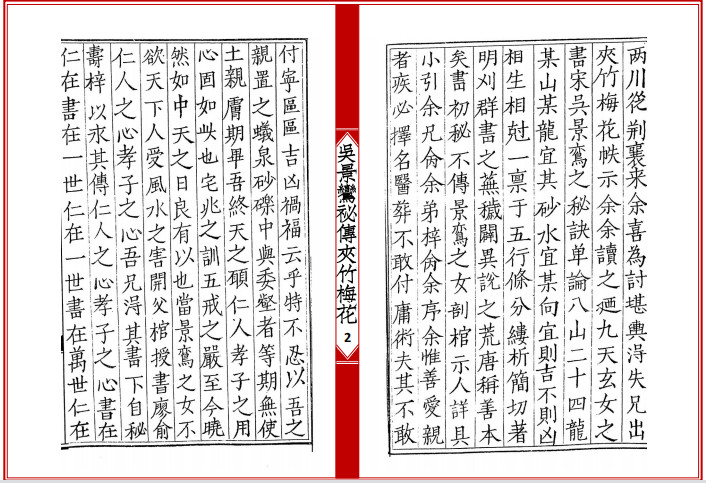 两川從荊襄来余喜為討堪輿淂失兄出
夾竹梅花帙示余余讀之廼九天玄女之
書宋吳景鸞之秘訣单論八山二十四龍
某山某龍宜其砂水宜某向宜則吉不則凶
相生相尅一禀于五行條分縷析簡切著
明刈群書之蕪穢闢異說之荒唐稱善本
矣書初秘不傳景鸞之女剖棺示人詳具
小引余兄俞余弟梓俞余序余惟善愛親
者疾必擇名醫葬不敢付庸術夫其不敢
吳景鸞祕傳夾竹梅花
2
付寧區區吉凶禍福云乎特不忍以吾之
親置之蟻泉砂礫中與委壑者等期無使
土親膚期畢吾終天之碩仁人孝子之用
心固如此也宅兆之訓五戒之嚴至今曉
然如中天之日良有以也當景鸞之女不
欲天下人受風水之害開父棺授書廖俞
仁人之心孝子之心吾兄淂其書下自秘
壽梓以求其傳仁人之心孝子之心書在
仁在書在一世仁在一世書在萬世仁在